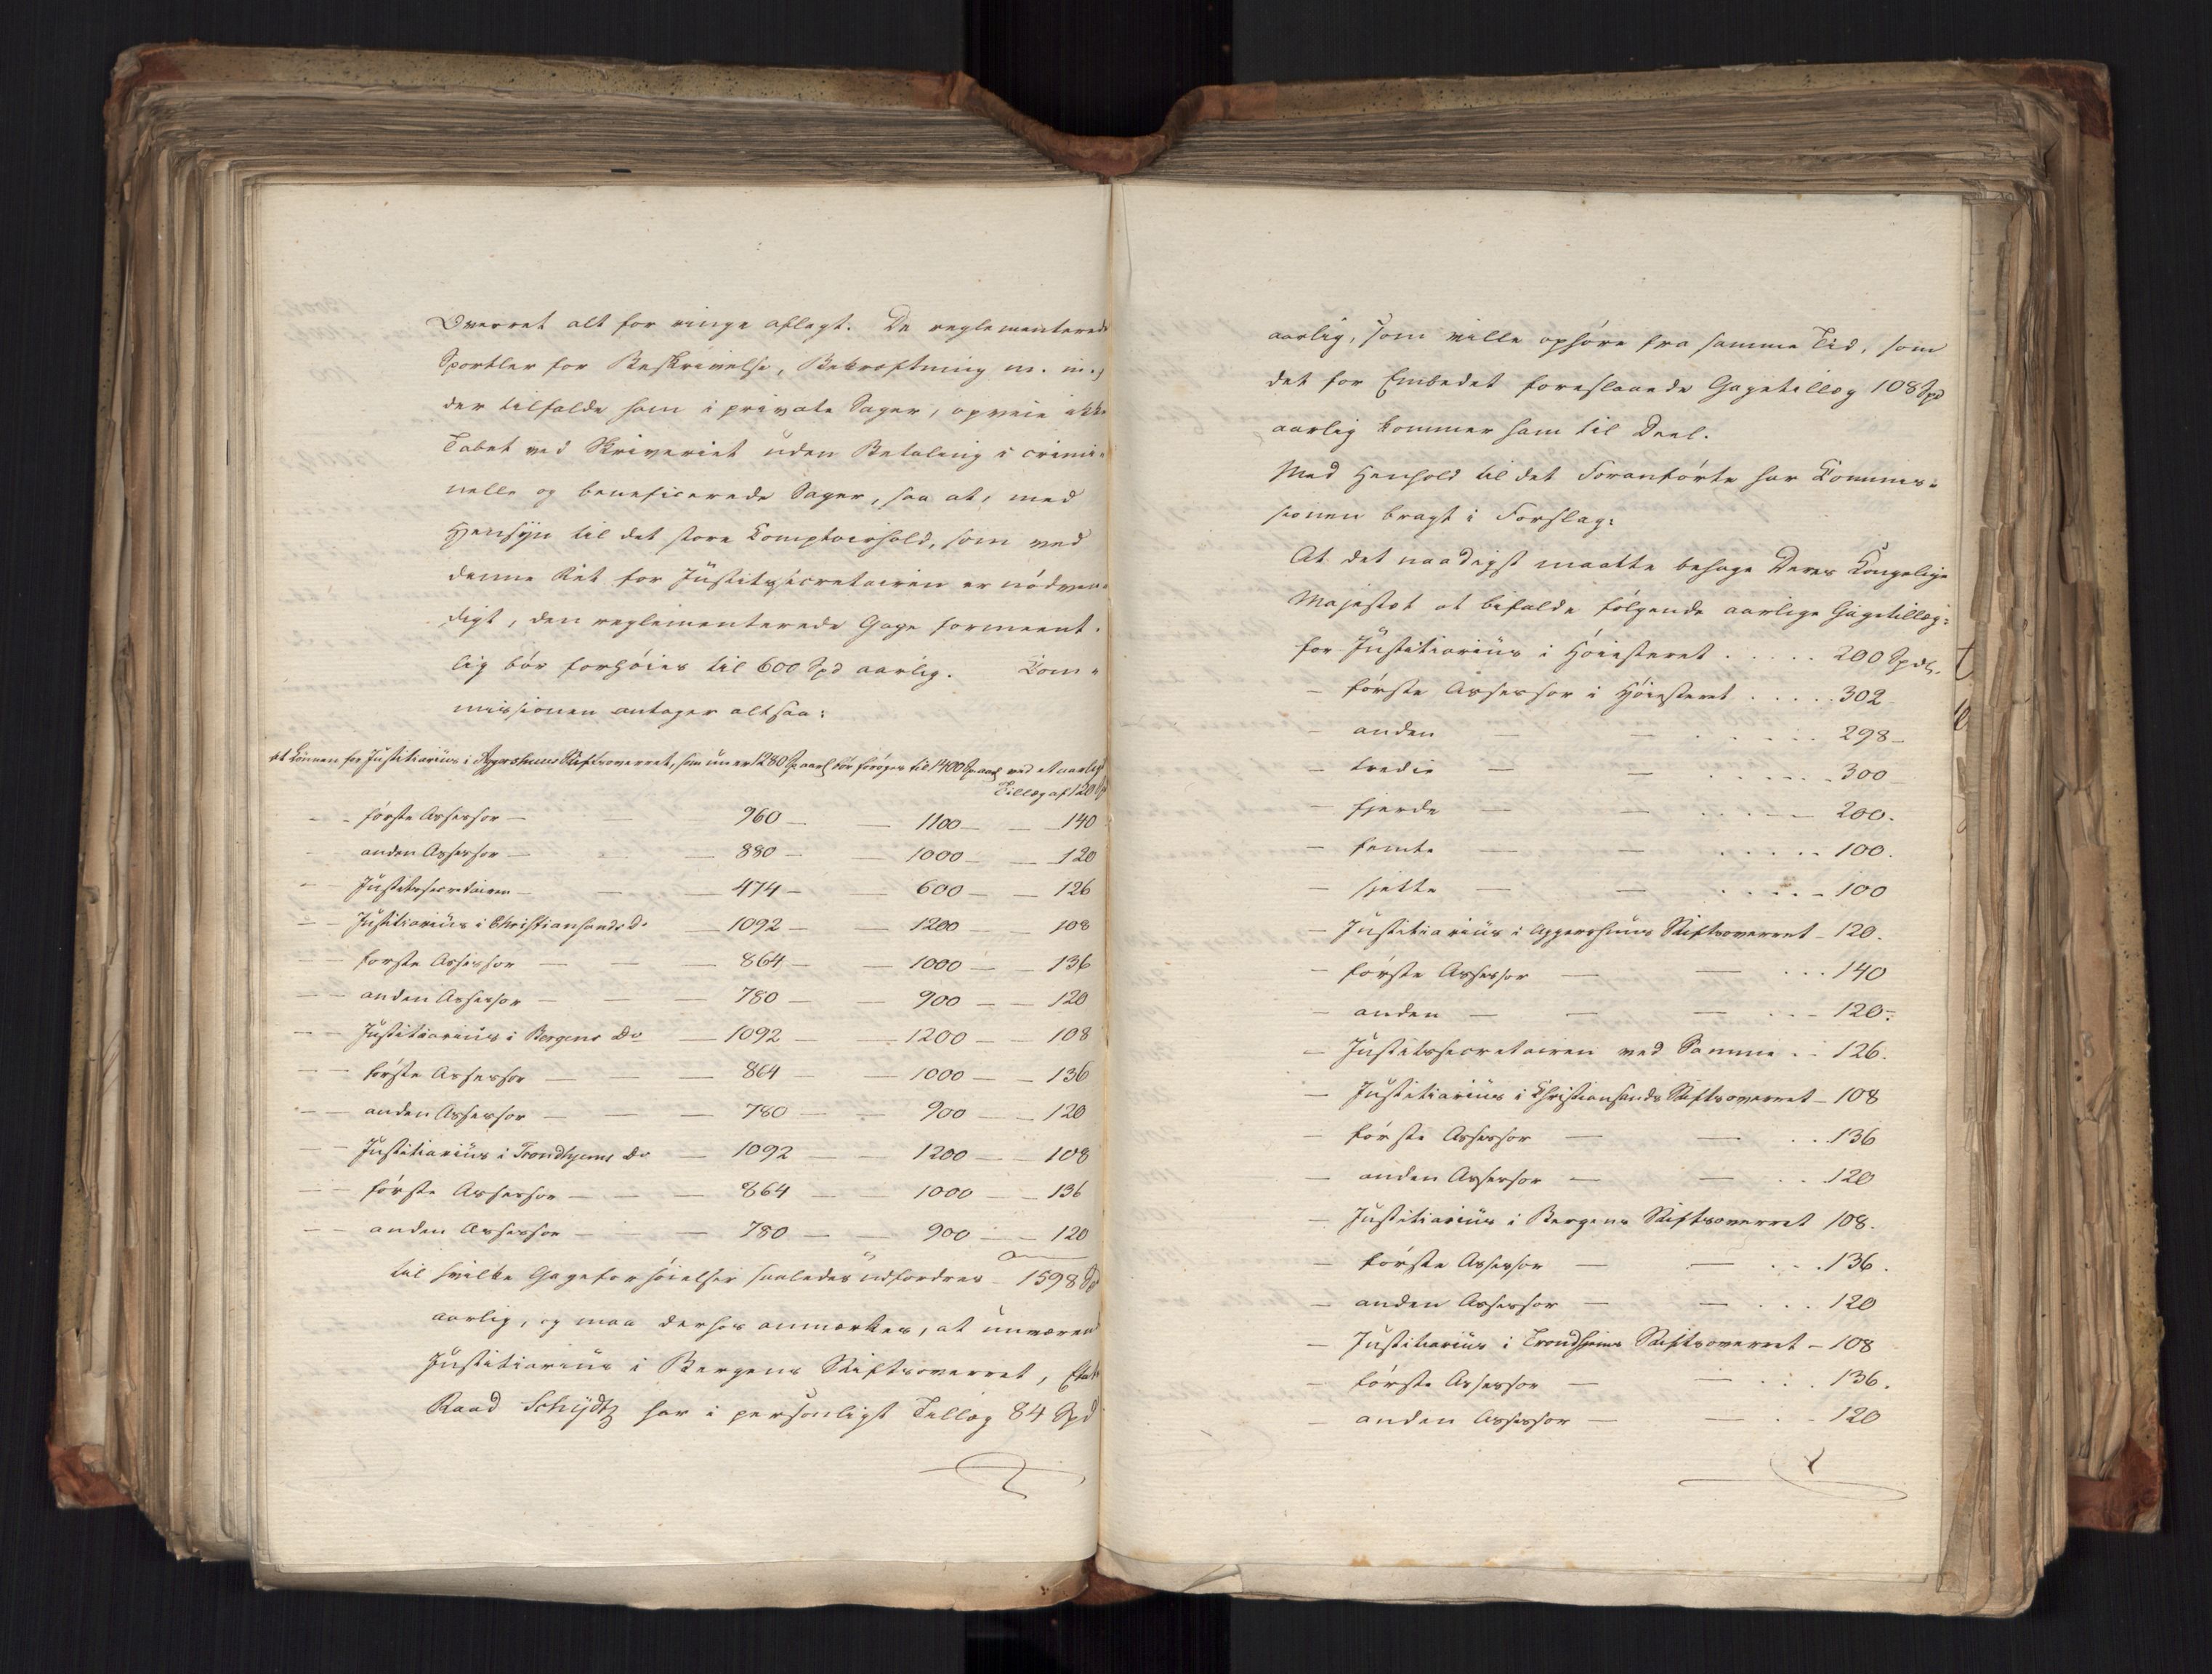 Overret alt for ringe aflagt. De reglementerede
Sportler for Beskrivelse, Bekræftning m. m.,
der tilfalde ham i private Sager, opveie ikke
Tabet ved Skriveriet uden Betaling i crimi-
nelle og beneficerede Sager, saa at, med
Hensyn til det store Comptoirhold, som ved
denne Ret for Justitssecretairen er nödven-
digt, den reglementerede Gage formeent-
lig bör forhöies til 600 Spd aarlig. Com-
missionen antager altsaa:
at Lönnen for Justitiarius i Aggershuus Stiftsoverret, som nu er 1280 Sp aarl bör foröges til 1400 Sp aarl ved et aarligt
Tillæg af 120 Sp
- - förste Assessor — — 960 — — 1100 — — 140
- anden Assessor — - — 880 — — 1000 — — 120
- - Justitssecretairen — — — 474 — — 600 — — 126
- - Justitiarius i Christiansands Do — 1092 — — 1200 — 108
- - forste Assessor — — — 864 — — 1000 — — 136
- - anden Assessor — — — 780 — — 900 — — 120
- - Justitiarius i Bergens Do — 1092 — — 1200 — — 108
- - förste Assessor — — — 864 — — 1000 — — 136
- - anden Assessor — — — 780 — — 900 — — 120
- - Justitiarius i Trondhjems Do — 1092 — — 1200 — — 108
- - förste Assessor — — — 864 — — 1000 — — 136
- - anden Assessor — — — 780 — — 900 — — 120
til hvilke Gageforhöielser saaledes udfordres - 1598 Sp
aarlig, og maa derhos anmærkes, at nuværend
Justitiarius i Bergens Stiftsoverret, Etats
Raad Schydtz har i personligt Tillæg 84 Spd
aarlig, som ville ophöre fra samme Tid, som
det for Embedet foreslaaede Gagetillæg 108 Spd
aarlig kommer ham til Deel.
Med Henhold til det Foranförte har Commis-
sionen bragt i Forslag:
At det naadigst maatte behage Deres Kongelige
Majestæt at bifalde fölgende aarlige Gagetillæg:
for Justitiarius i Höiesteret . . . . . 200 Spdl.
- förste Assessor i Höiesteret . . . . . 302
- anden — — . . . . . 298 -
- tredie — — . . . . . 300
- fjerde — — . . . . . 200.
- femte — — . . . . . 100.
- sjette — — . . . . . 100
- Justitiarius i Aggershuus Stiftsoverret - 120.
- förste Assessor — — . . . 140
- anden — — — . . . 120.
- Justitssecretairen ved Samme . . 126.
- Justitiarius i Christiansands Stiftsoverret - 108
- förste Assessor — — . . 136
- anden Assessor — — . . 120
- Justitiarius i Bergens Stiftsoverret 108.
- förste Assessor — — . . . 136.
- anden Assessor — — . . . 120
- Justitiarius i Trondhjems Stiftsoverret - 108
- förste Assessor — — . . . 136.
- anden Assessor — — . . 120